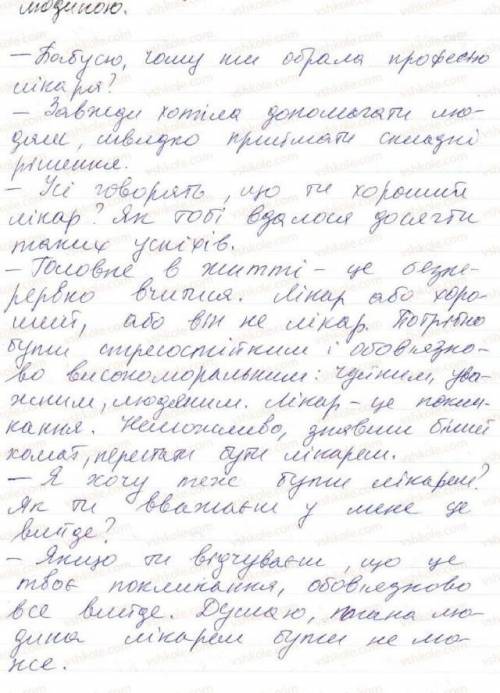 людиною.
– Бабусю, чому ти обрала професію
лікаря?
– Завжди хотіла допомагати лю-
дям, швидко приймати складні
рішення.
– Усі говорять, що ти хороший
лікар? Як тобі вдалося досягти
таких успіхів.
– Головне в житті – це безпе-
рервно вчитися. Лікар або хоро-
ший, або він не лікар. Потрібно
бути стресостійким і обов'язко-
во високоморальним: чуйним, ува-
жним, людяним. Лікар – це покли-
кання. Неможливо, знявши білий
халат, перестати бути лікарем.
– Я хочу теж бути лікарем?
Як ти вважаєш у мене це
вийде?
– Якщо ти відчуваєш, що це
твоє покликання, обов'язково
все вийде. Думаю, погана лю-
дина лікарем бути не мо-
же.